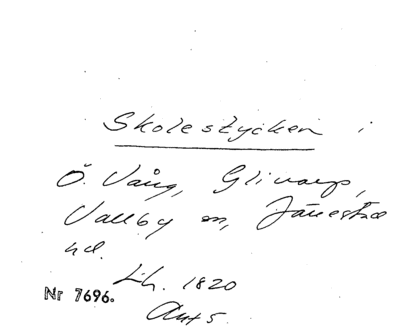 Skolestycken i
Ö. Vång, Glivarp,
Vallby m, Järrestad
hd.
Lh. 1820
Nr 7696.
Aut 5.